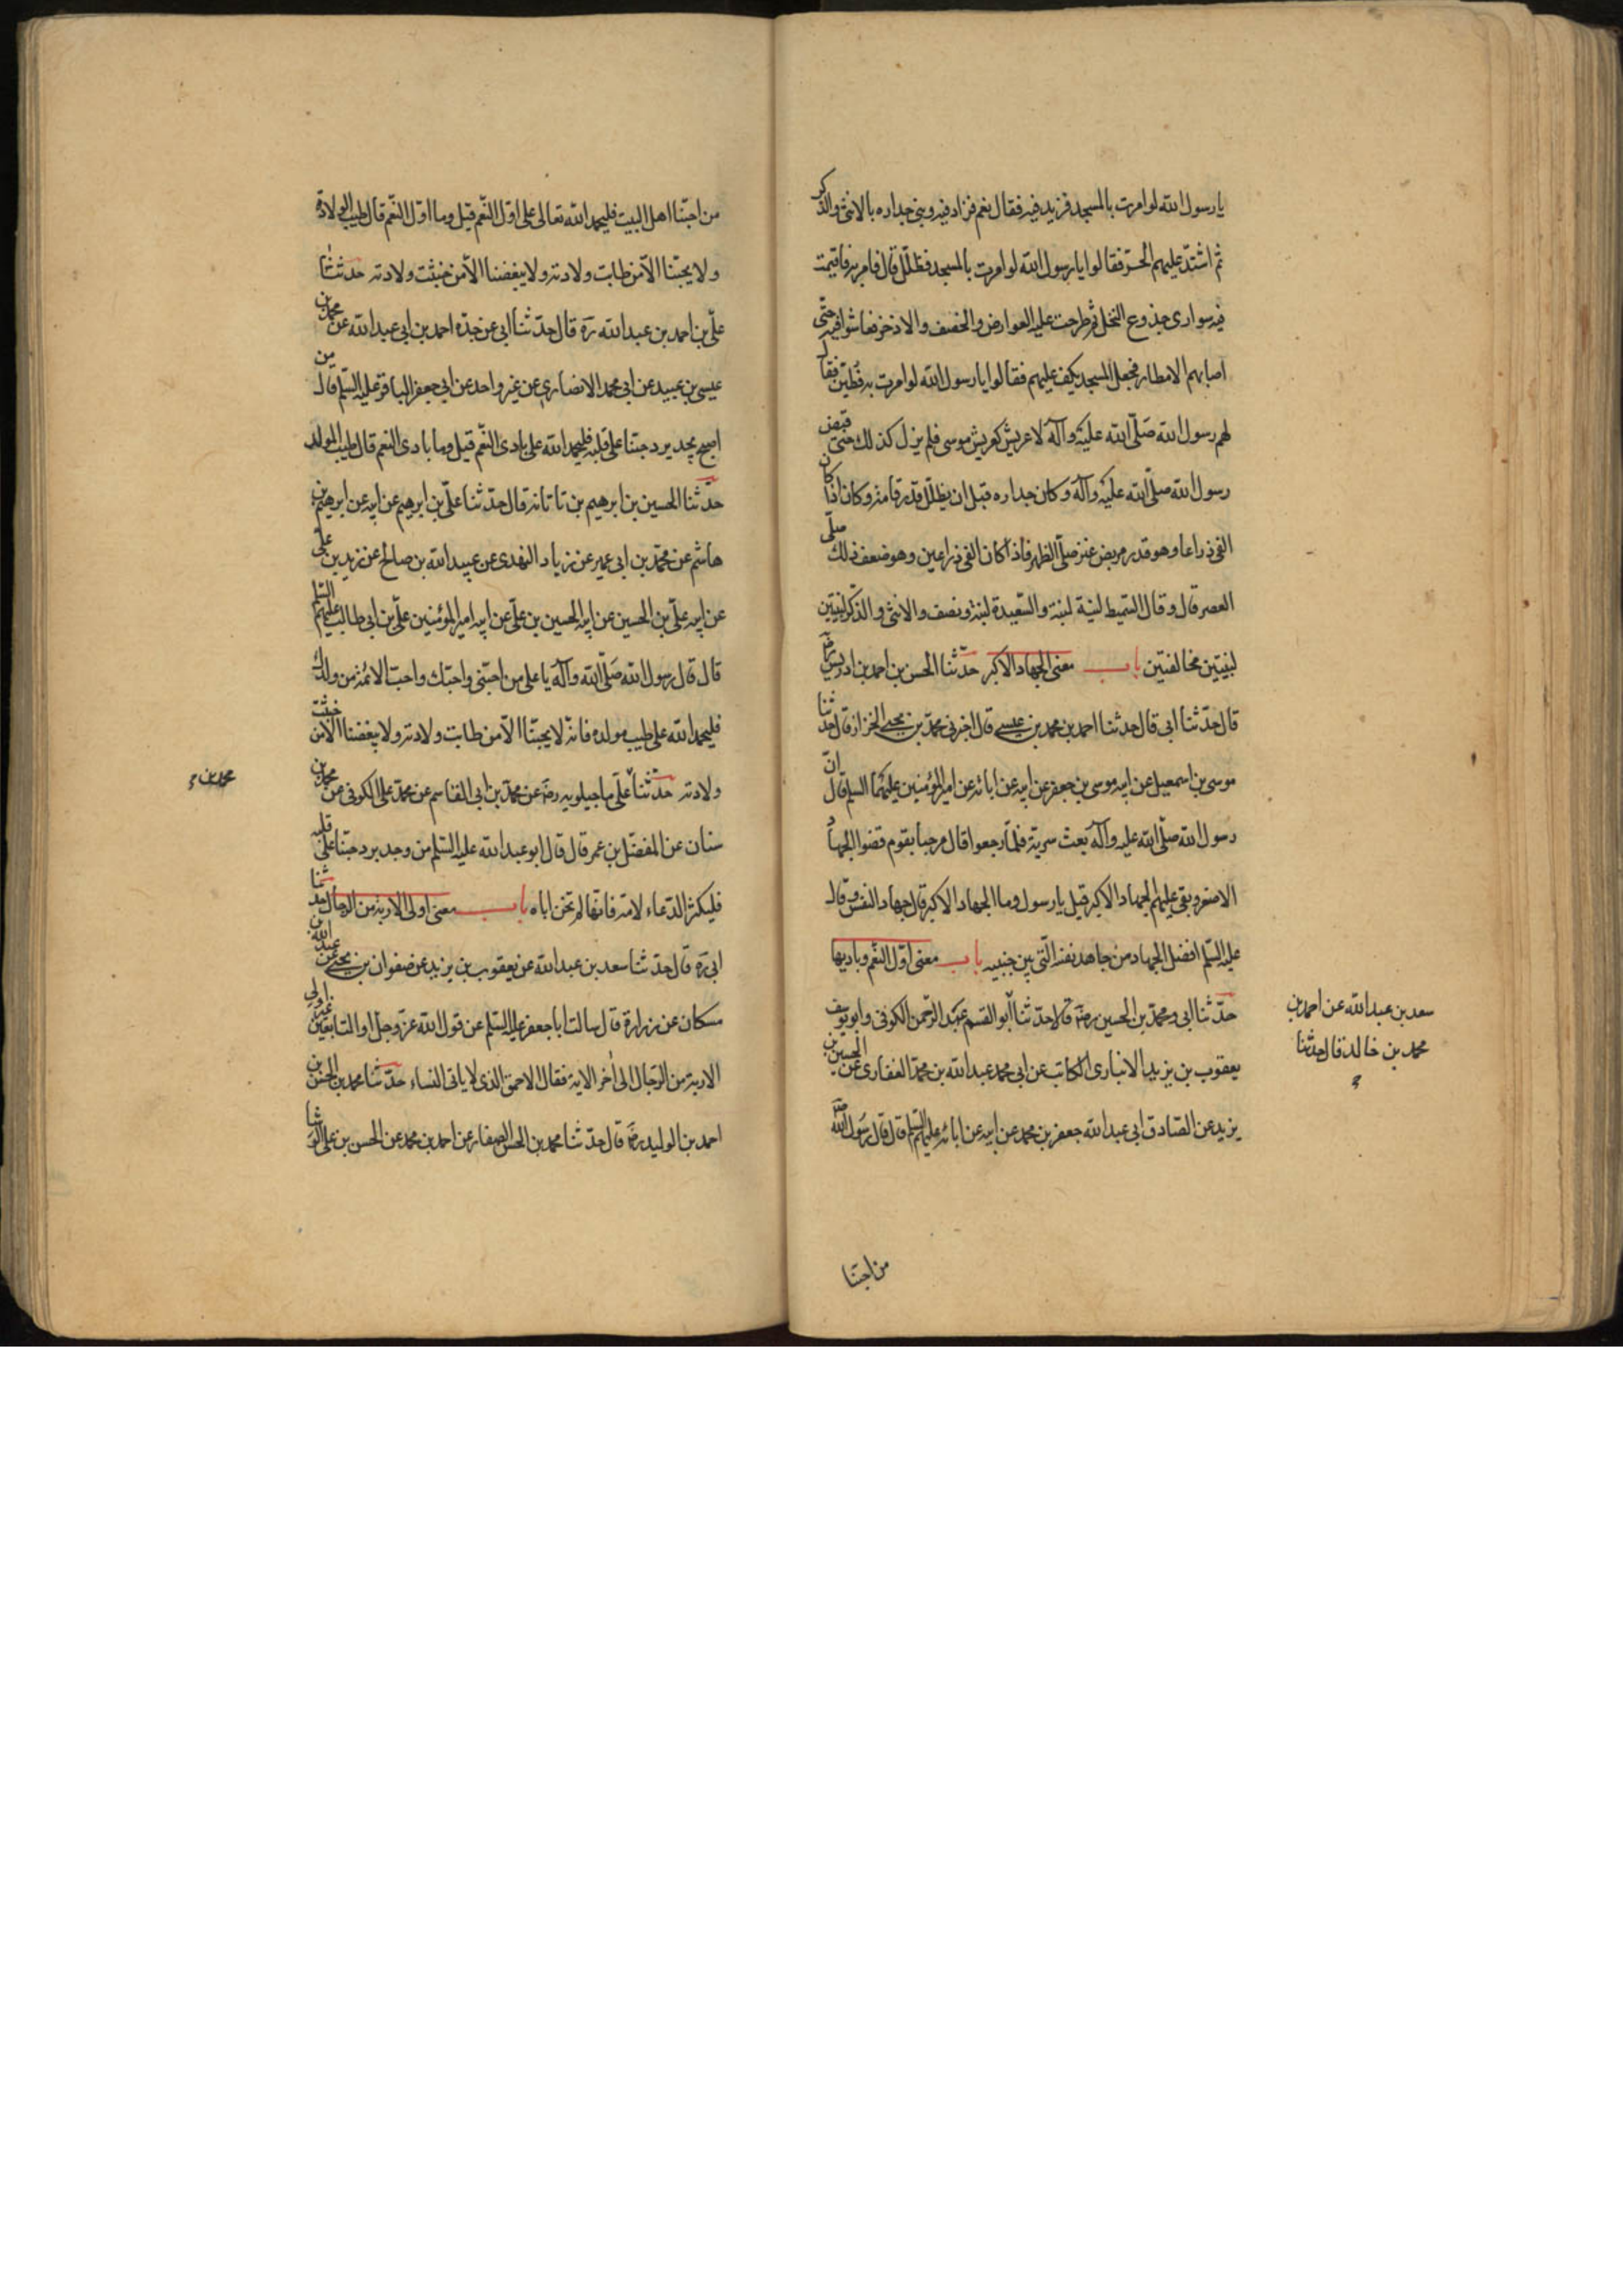 يا رسول الله لو امرت بالمسجد فزيد فيه فقال نعم فزاد فيه وبنى جداره بالانثى والذكر
ثم اشتد عليهم الحر فقالوا يا رسول الله لو امرت بالمسجد فظلل قال فامر به فاقيمت
فيه سوارى جذوع النخل ثم طرحت عليه العوارض والخصف والاذخر فعاشوا فيه حتى
اصابهم الامطار فجعل المسجد يكف عليهم فقالوا يا رسول الله لو امرت به فطين فقال
لهم رسول الله صلى الله عليه وآله لا عريش كعريش موسى فلم يزل كذلك حتى قبض
رسول الله صلى الله عليه وآله وكان جداره قبل ان يظلل قدر قامة وكان اذا كان
الفئ ذراعا وهو قدر مربض عنز صلى الظهر فاذا كان الفئ ذراعين وهو ضعف ذلك صلى
العصر قال وقال السميط لبنة لبنة والسعيدة لبنة ونصف والانثى والذكر لبنتين
لبنتين مخالفتين باب معنى الجهاد الاكبر حدثنا الحسن بن احمد بن ادريس رضه
قال حدثنا ابى قال حدثنا احمد بن محمد بن عيسى قال اخبرنى محمد بن يحيى الخزاز قال حدثنا
موسى بن اسمعيل عن ابيه موسى بن جعفر عن ابيه عن ابائه عن امير المؤمنين عليهم السلم قال ان
رسول الله صلى الله عليه وآله بعث سرية فلما رجعوا قال مرحبا بقوم قضوا الجهاد
الاصغر وبقى عليهم الجهاد الاكبر قيل يا رسول وما الجهاد الاكبر قال جهاد النفس وقال
عليه السلم افضل الجهاد من جاهد نفسه التى بين جنبيه باب معنى اول النعم وباديها
حدثنا ابى ومحمد بن الحسين رضه قالا حدثنا ابو القسم عبد الرحمن الكوفى وابو يوسف
يعقوب بن يزيد الانبارى الكاتب عن ابى محمد عبد الله بن محمد الغفارى عن الحسين بن
يزيد عن الصادق ابى عبد الله جعفر بن محمد عن ابيه عن ابائه عليهم السلم قال قال رسول الله صلى
سعد بن عبد الله عن احمد بن
محمد بن خالد قال حدثنا
من احبنا
من احبنا اهل البيت فليحمد الله تعالى على اول النعم قيل وما اول النعم قال طيب الولادة
ولا يحبنا الا من طابت ولادته ولا يبغضنا الا من خبثت ولادته حدثنا
على بن احمد بن عبد الله ره قال حدثنا ابى عن جده احمد بن ابى عبد الله عن محمد بن
عيسى بن عبيد عن ابى محمد الانصارى عن غير واحد عن ابى جعفر الباقر عليه السلم قال من
اصبح يجد برد حبنا على قلبه فليحمد الله على بادى النعم قيل وما بادى النعم قال طيب المولد
حدثنا الحسين بن ابرهيم بن تاتانه قال حدثنا على بن ابرهيم عن ابيه عن ابرهيم بن
هاشم عن محمد بن ابى عمير عن زياد النهدى عن عبيد الله بن صالح عن زيد بن على
عن ابيه على بن الحسين عن ابيه الحسين بن على عن ابيه امير المؤمنين على بن ابى طالب عليهم السلم
قال قال رسول الله صلى الله وآله يا على من احبنى واحبك واحب الائمة من ولدك
فليحمد الله على طيب مولده فانه لا يحبنا الا من طابت ولادته ولا يبغضنا الا من خبثت
ولادته حدثنا على ماجيلويه رضه عن محمد بن ابى القاسم عن محمد على الكوفى عن محمد بن
سنان عن المفضل بن عمر قال قال ابو عبد الله عليه السلم من وجد برد حبنا على قلبه
فليكثر الدعاء لامه فانها لم تخن اباه باب معنى اولى الاربة من الرجال حدثنا
ابى ره قال حدثنا سعد بن عبد الله عن يعقوب بن يزيد عن صفوان بن يحيى عن عبد الله بن
مسكان عن زرارة قال سالت ابا جعفر عليه السلم عن قول الله عز وجل او التابعين غير اولى
الاربة من الرجال الى اخر الاية فقال الاحمق الذى لا ياتى النساء حدثنا محمد بن الحسن بن
احمد بن الوليد رضه قال حدثنا محمد بن الحسن الصفار عن احمد بن محمد عن الحسن بن على الوشا
محمد بن